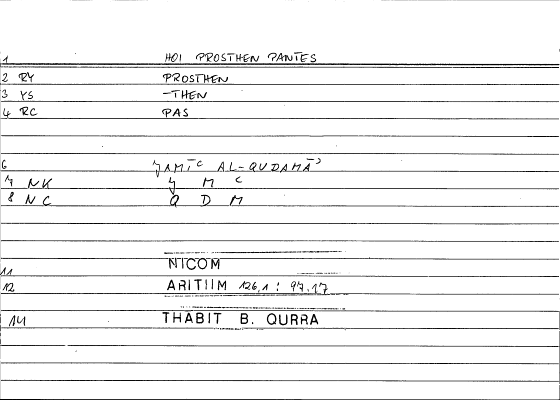 1 HOI PROSTHEN PANTES
2 RY PROSTHEN
3 YS -THEN
4 RC PAS
6 ǦAMĪʿ AL-QUDAMĀʾ
7 NK Ǧ M ʿ
8 NC Q D M
11 NICOM
12 ARITIIM 126,1 : 97,17
14 THABIT B. QURRA